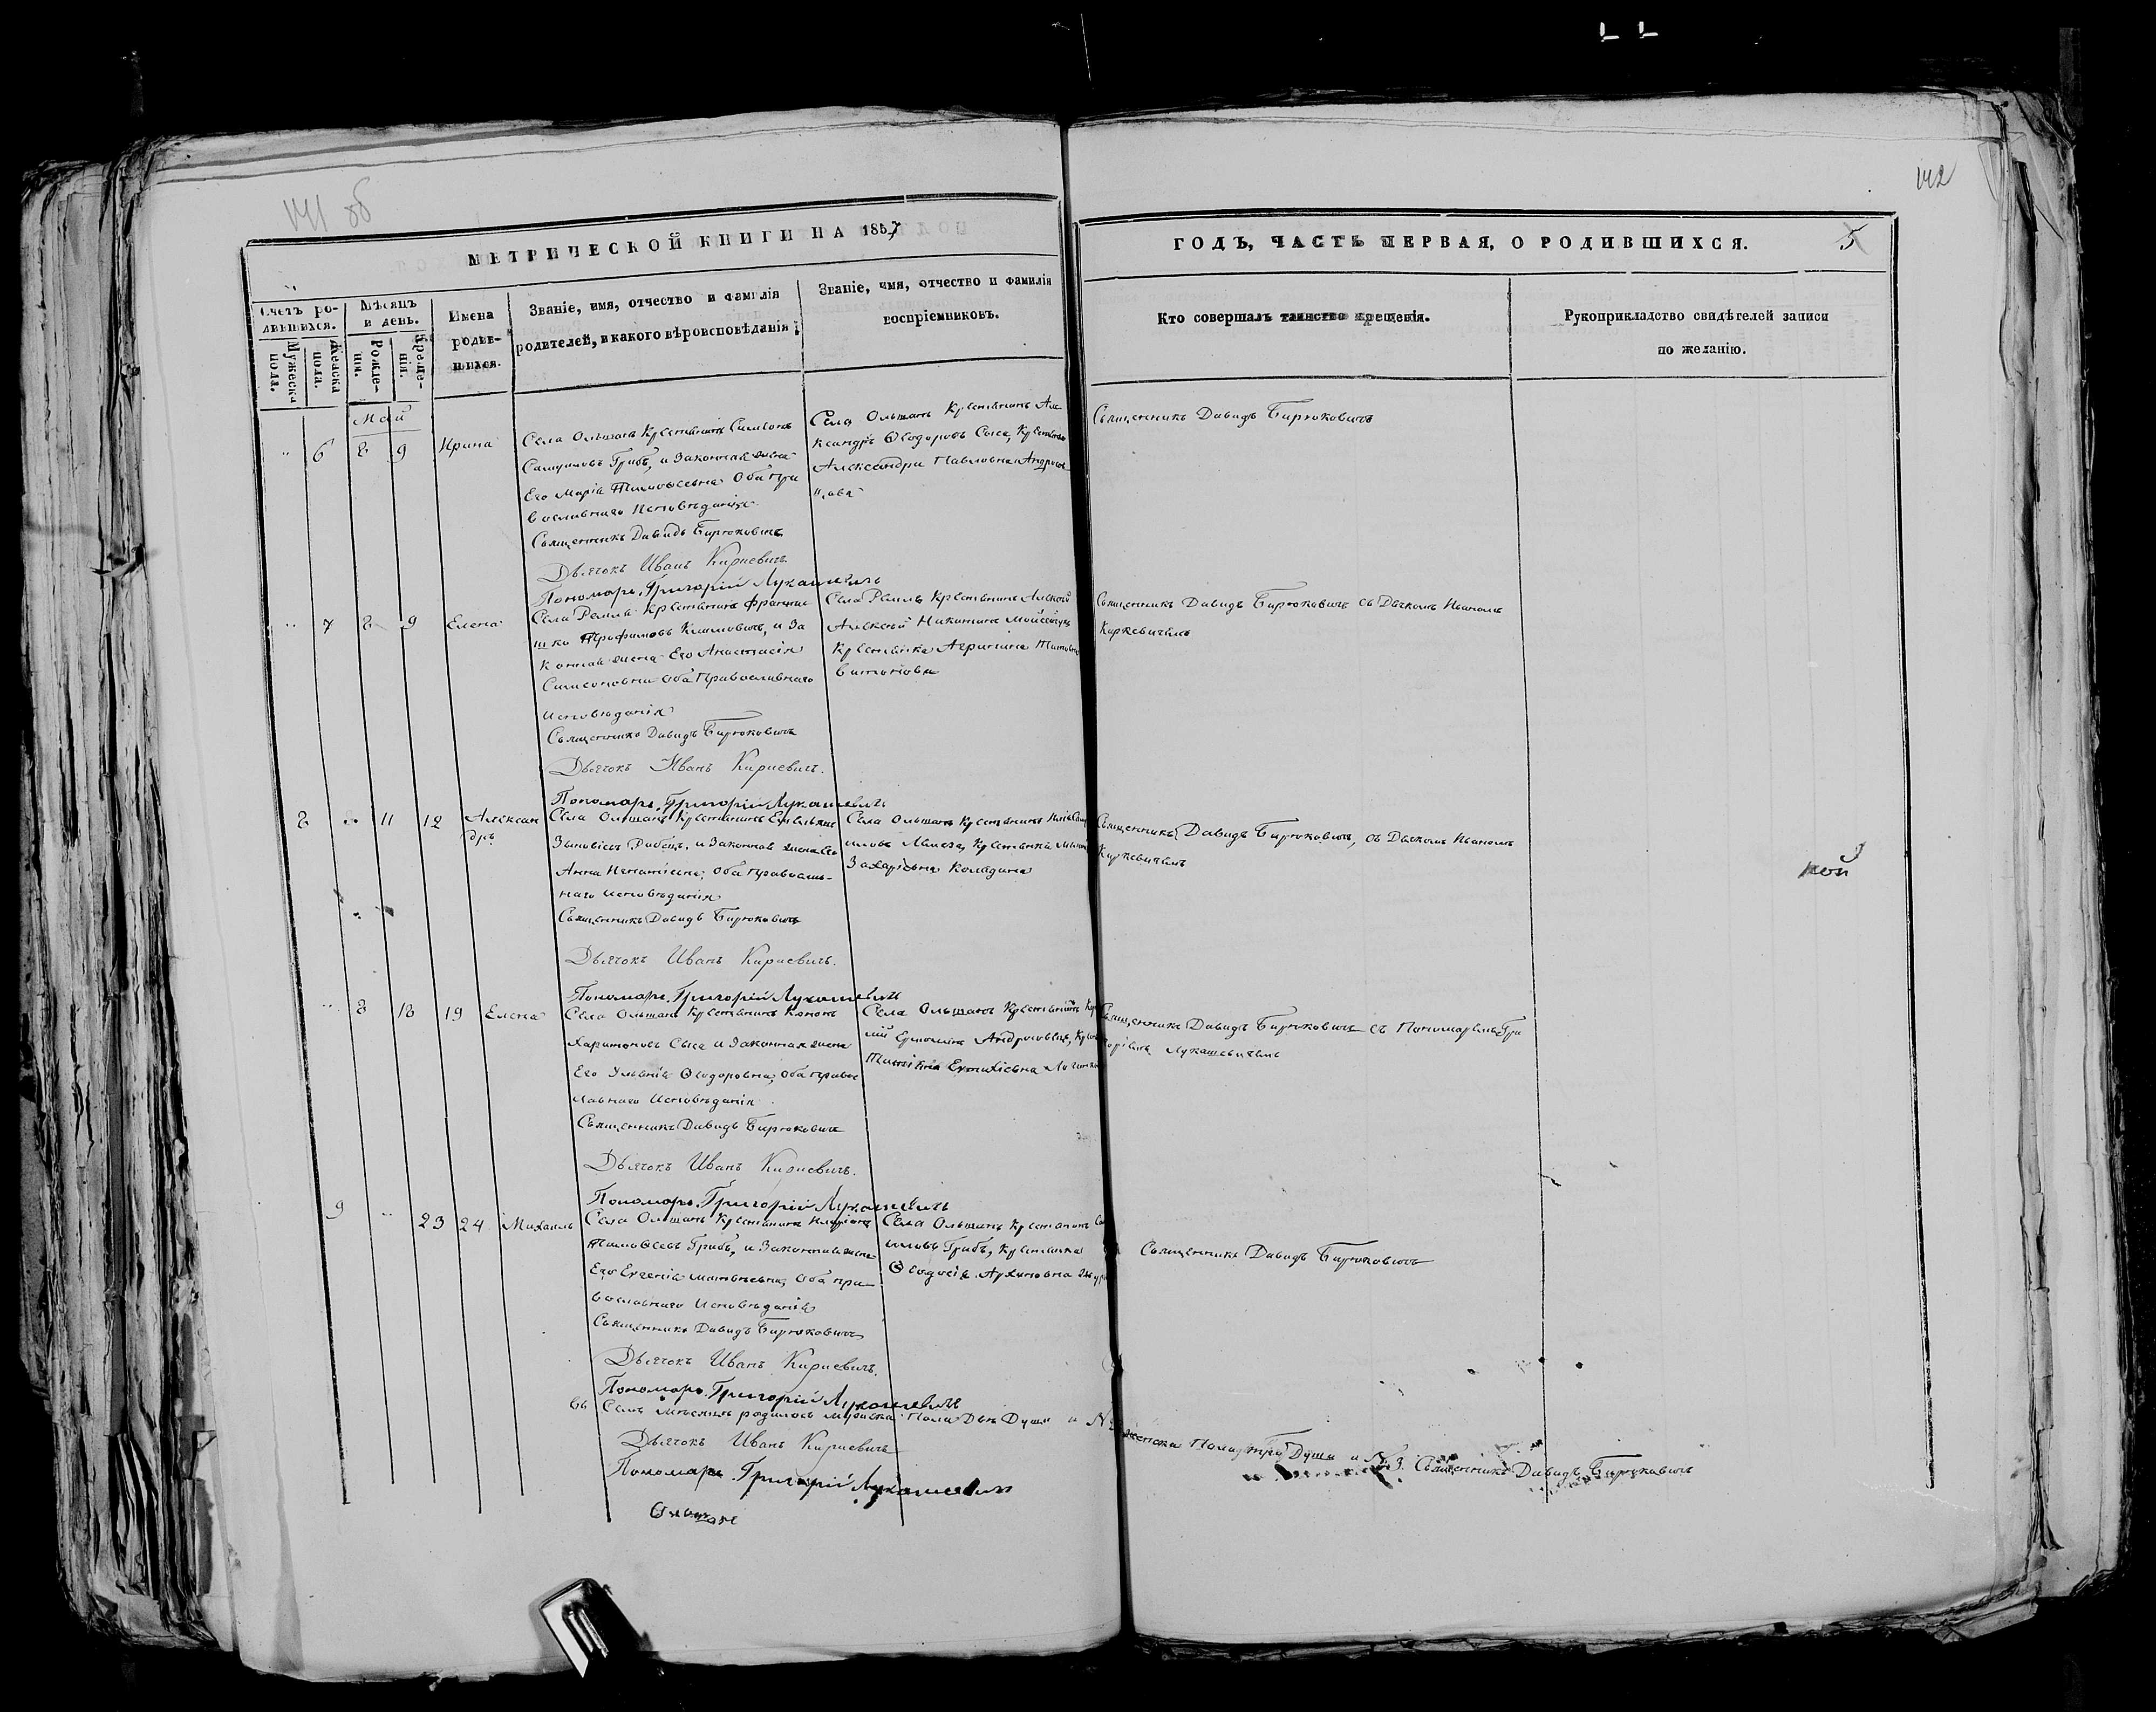 141 об
142
МЕТРИЧЕСКОЙ КНИГИ НА 1857
ГОДЪ, ЧАСТЬ ПЕРВАЯ, О РОДИВШИХСЯ.
5
Счетъ ро-
дившихся.
Мужеска
пола.
Женска
пола.
Мѣсяцъ
и день.
Рожде-
нія.
Креще-
нія.
Имена
родив-
шихся.
Званіе, имя, отчество и фамилія
родителей, и какого вѣроисповѣданія.
Званіе, имя, отчество и фамилія
воспріемниковъ.
Кто совершалъ таинство крещенія.
Рукоприкладство свидѣтелей записи
по желанію.
Май
6 8 9 Ирина
Села Ольшанъ Крестьянинъ Симеонъ
Самуиловъ Грибъ, и Законная жена
Его Марія Тимофеевна Оба пра
вославнаго Исповѣданія
Священникъ Давидъ Бирюковичъ
Дьячокъ Иванъ Киркевичъ.
Пономарь Григорій Лукашевичъ
Села Ольшанъ Крестьянинъ Але
ксандръ Ѳеодоровъ Сыса, Крестьянка
Александра Павловна
Священникъ Давидъ Бирюковичъ
7 8 9 Елена
Села Ремля Крестьянинъ Франциш
ко Трофимовъ Климовичъ, и За
конная жена Его Анастасія
Симеоновна Оба Православнаго
Исповѣданія
Священникъ Давидъ Бирюковичъ
Дьячокъ Иванъ Киркевичъ.
Пономарь Григорій Лукашевичъ
Села Ремля Крестьянинъ Алексѣй
Алексѣй Никитинъ
Крестьянка Агрипина
Священникъ Давидъ Бирюковичъ съ Дьячкомъ Иваномъ
Киркевичемъ
8 11 12 Алексан
дръ
Села Ольшанъ Крестьянинъ Емельянъ
Зиновіевъ Рабецъ, и Законная жена Его
Анна Игнатіевна, Оба Православ-
наго Исповѣданія
Священникъ Давидъ Бирюковичъ
Дьячокъ Иванъ Киркевичъ.
Пономарь Григорій Лукашевичъ
Села Ольшанъ Крестьянинъ
Крестьянка
Захаріевна Колядина
Священникъ Давидъ Бирюковичъ, съ Дьячкомъ Иваномъ
Киркевичемъ
8 18 19 Елена
Села Ольшанъ Крестьянинъ Кононъ
Харитоновъ Сыса и Законная жена
Его Ульянія Ѳеодоровна, Оба право
славнаго Исповѣданія
Священникъ Давидъ Бирюковичъ
Дьячокъ Иванъ Киркевичъ.
Пономарь Григорій Лукашевичъ
Села Ольшанъ Крестьянинъ
Священникъ Давидъ Бирюковичъ съ Пономаремъ Гри
горіемъ Лукашевичемъ
9 23 24 Михаилъ
Села Ольшанъ Крестьянинъ
Тимоѳеевъ Грибъ, и Законная жена
Его Евгенія Матвѣевна, Оба пра
вославнаго Исповѣданія
Священникъ Давидъ Бирюковичъ
Дьячокъ Иванъ Киркевичъ.
Пономарь Григорій Лукашевичъ
Села Ольшанъ Крестьянинъ
Грибъ, Крестьянка
Ѳеодосія Архиповна
Священникъ Давидъ Бирюковичъ
Въ Семъ мѣсяцѣ родилось мужеска Пола Двѣ Души и
женска Пола три Души и № 3. Священникъ Давидъ Бирюковичъ
Дьячокъ Иванъ Киркевичъ
Пономарь Григорій Лукашевичъ